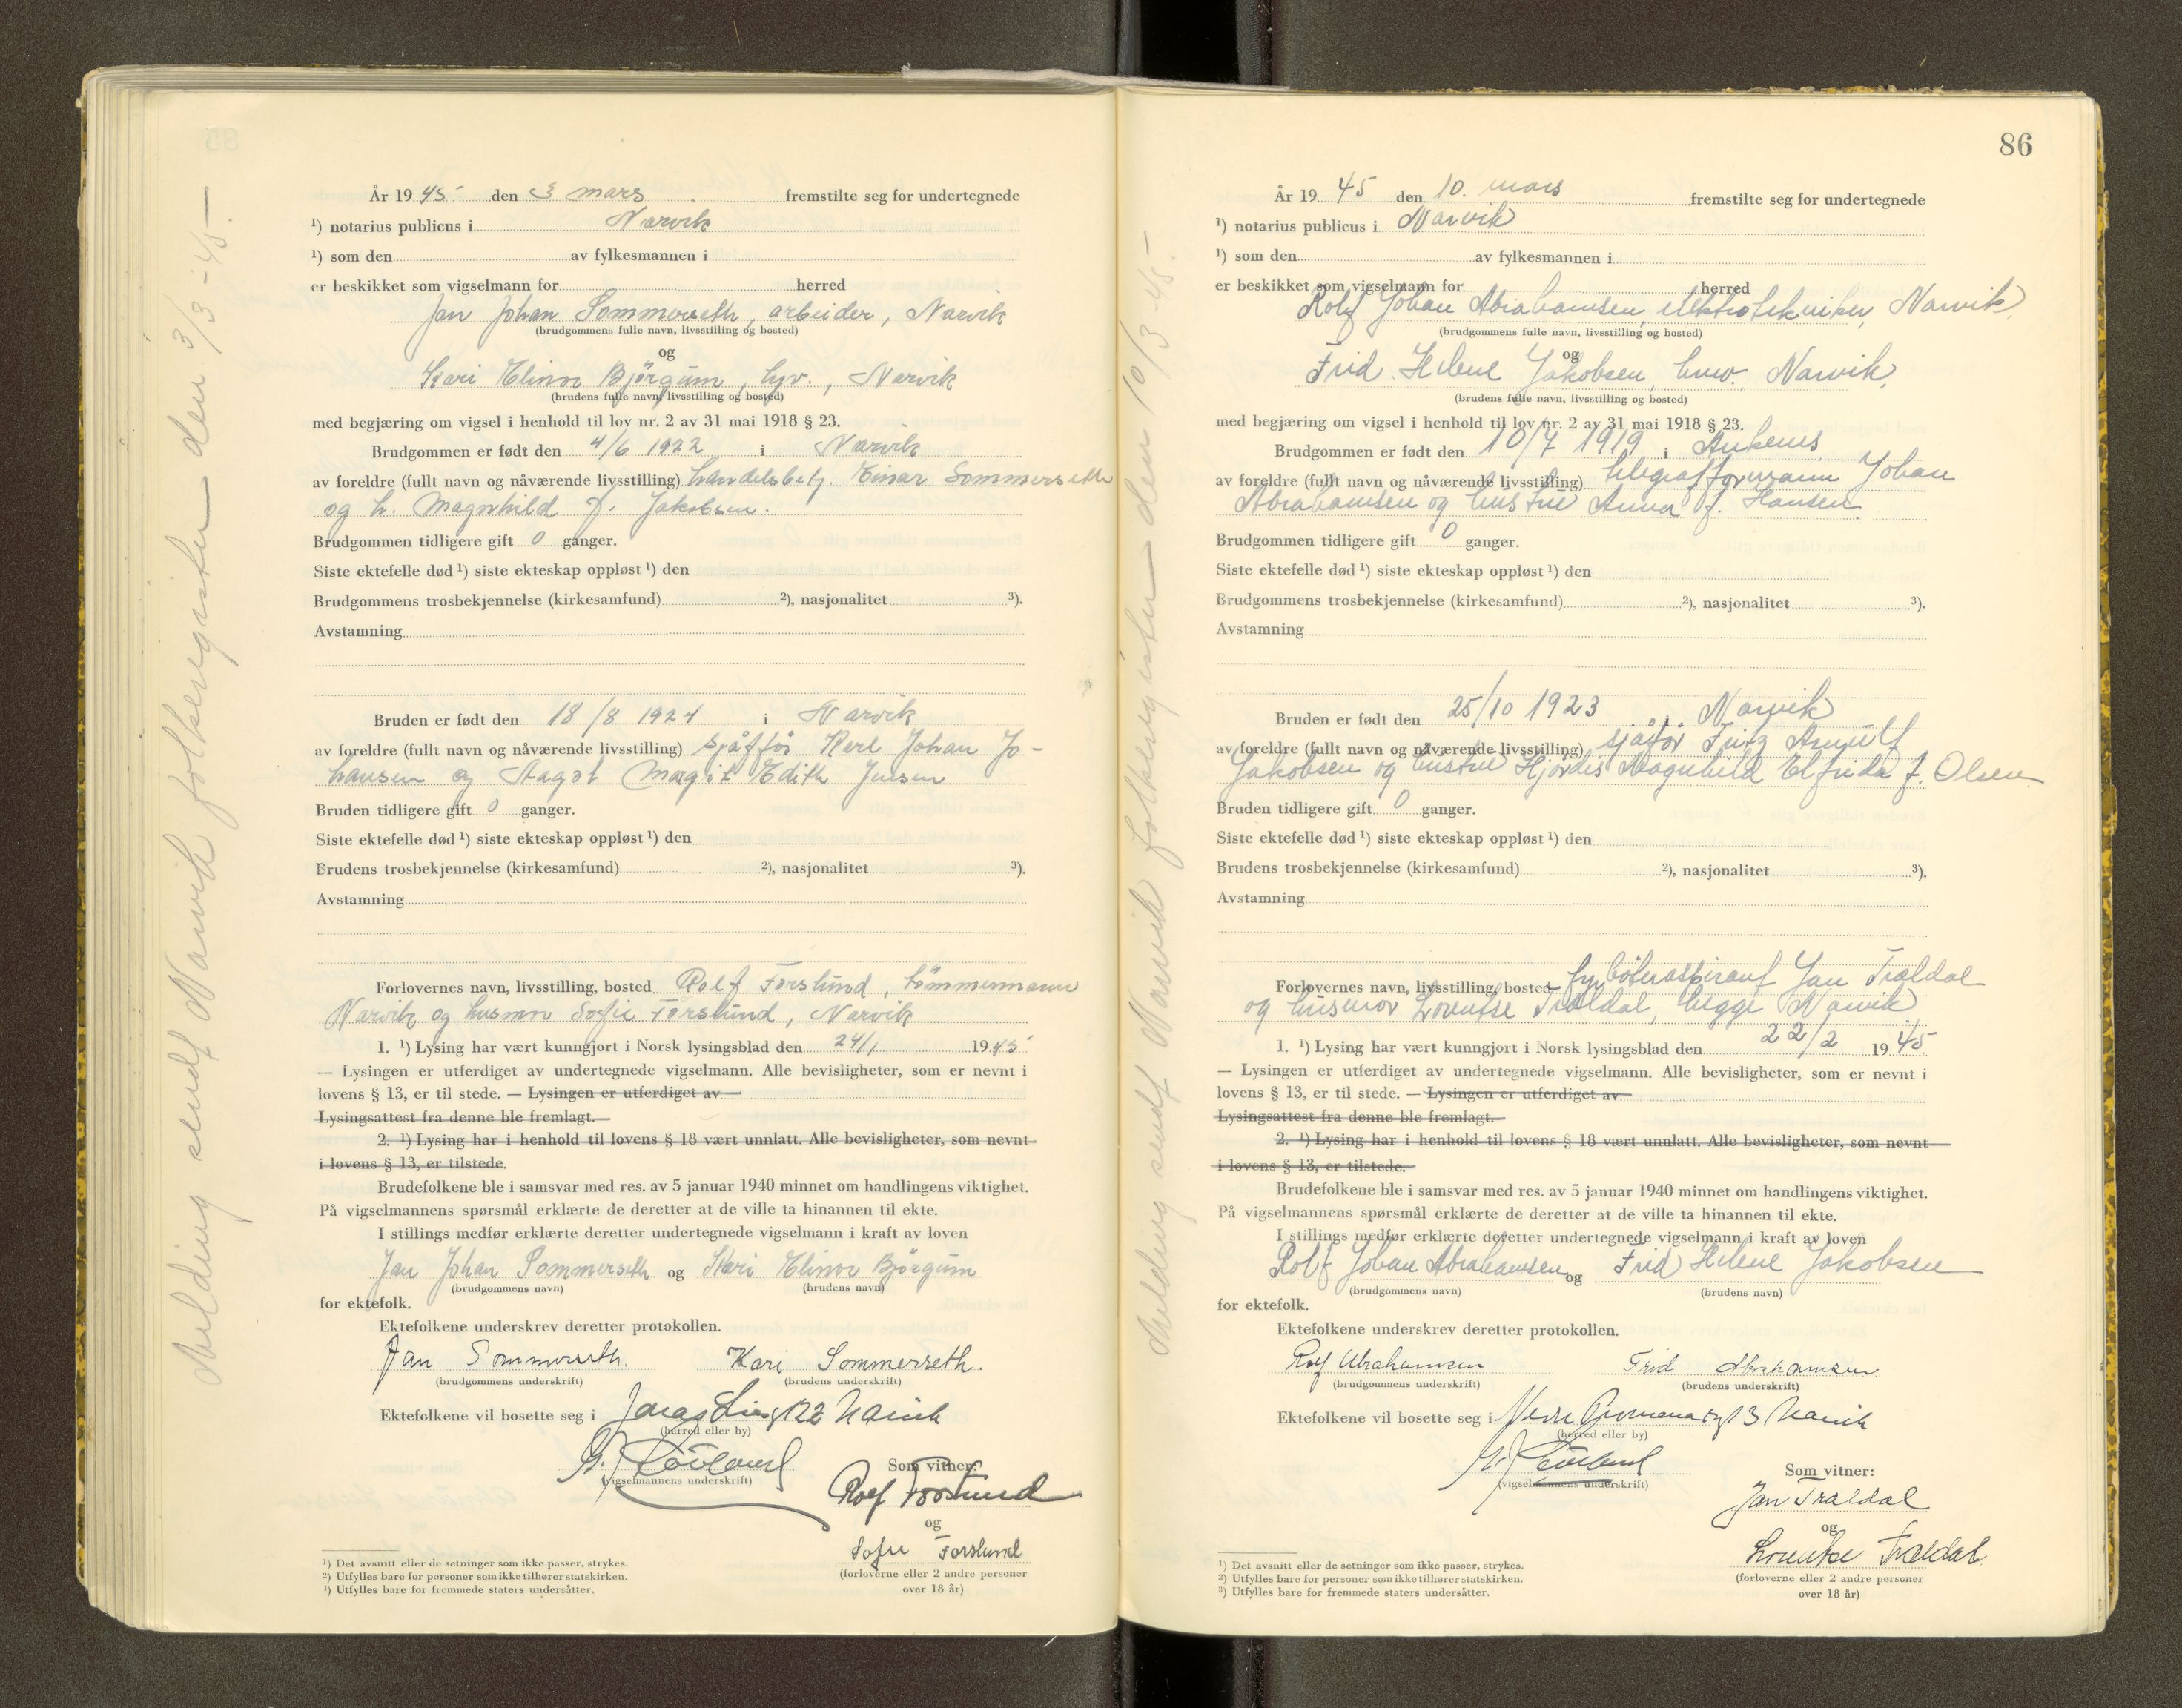 Melding sendt Narvik folkeregister den 3/3-45.-
År 1945 den 3 mars fremstilte seg for undertegnede
¹) notarius publicus i Narvik
¹) som den av fylkesmannen i
er beskikket som vigselmann for herred
Jan Johan Sommerseth, arbeider, Narvik
(brudgommens fulle navn, livsstilling og bosted)
og
Kari Elinor Bjørgum, hjv., Narvik
(brudens fulle navn, livsstilling og bosted)
med begjæring om vigsel i henhold til lov nr. 2 av 31 mai 1918 § 23.
Brudgommen er født den 4/6 1922 i Narvik
av foreldre (fullt navn og nåværende livsstilling) handelsbetj. Einar Sommerseth
og h. Magnhild f. Jakobsen.
Brudgommen tidligere gift 0 ganger.
Siste ektefelle død ¹) siste ekteskap oppløst ¹) den
Brudgommens trosbekjennelse (kirkesamfund) ²), nasjonalitet ³).
Avstamning
Bruden er født den 18/8 1924 i Narvik
av foreldre (fullt navn og nåværende livsstilling) sjåffør Karl Johan Jo-
hansen og Aagot Margit Edith Jensen
Bruden tidligere gift 0 ganger.
Siste ektefelle død ¹) siste ekteskap oppløst ¹) den
Brudens trosbekjennelse (kirkesamfund) ²), nasjonalitet ³).
Avstamning
Forlovernes navn, livsstilling, bosted Rolf Forslund, tømmermann
Narvik og husmor Sofie Forslund, Narvik
1. ¹) Lysing har vært kunngjort i Norsk lysingsblad den 24/1 1945
— Lysingen er utferdiget av undertegnede vigselmann. Alle bevisligheter, som er nevnt i
lovens § 13, er til stede. — Lysingen er utferdiget av
Lysingsattest fra denne ble fremlagt.
2. ¹) Lysing har i henhold til lovens § 18 vært unnlatt. Alle bevisligheter, som nevnt
i lovens § 13, er tilstede.
Brudefolkene ble i samsvar med res. av 5 januar 1940 minnet om handlingens viktighet.
På vigselmannens spørsmål erklærte de deretter at de ville ta hinannen til ekte.
I stillings medfør erklærte deretter undertegnede vigselmann i kraft av loven
Jan Johan Sommerseth og Kari Elinor Bjørgum
(brudgommens navn) (brudens navn)
for ektefolk.
Ektefolkene underskrev deretter protokollen.
Jan Sommerseth. Kari Sommerseth.
(brudgommens underskrift) (brudens underskrift)
Ektefolkene vil bosette seg i Narvik
(herred eller by)
(vigselmannens underskrift)
Som vitner:
Rolf Forslund
og
Sofie Forslund
(forloverne eller 2 andre personer
over 18 år)
¹) Det avsnitt eller de setninger som ikke passer, strykes.
²) Utfylles bare for personer som ikke tilhører statskirken.
³) Utfylles bare for fremmede staters undersåtter.
86
Melding sendt Narvik folkeregister den 10/3-45.-
År 1945 den 10. mars fremstilte seg for undertegnede
¹) notarius publicus i Narvik
¹) som den av fylkesmannen i
er beskikket som vigselmann for herred
Rolf Johan Abrahamsen, elektrotekniker, Narvik,
(brudgommens fulle navn, livsstilling og bosted)
og
Frid Helene Jakobsen, husv., Narvik,
(brudens fulle navn, livsstilling og bosted)
med begjæring om vigsel i henhold til lov nr. 2 av 31 mai 1918 § 23.
Brudgommen er født den 10/7 1919 i Ankenes
av foreldre (fullt navn og nåværende livsstilling) telegrafformann Johan
Abrahamsen og hustru Anna f. Hansen.
Brudgommen tidligere gift 0 ganger.
Siste ektefelle død ¹) siste ekteskap oppløst ¹) den
Brudgommens trosbekjennelse (kirkesamfund) ²), nasjonalitet ³).
Avstamning
Bruden er født den 25/10 1923 i Narvik
av foreldre (fullt navn og nåværende livsstilling) sjåfør Fritz Arnulf
Jakobsen og hustru Hjørdis Magnhild Elfrida f. Olsen
Bruden tidligere gift 0 ganger.
Siste ektefelle død ¹) siste ekteskap oppløst ¹) den
Brudens trosbekjennelse (kirkesamfund) ²), nasjonalitet ³).
Avstamning
Forlovernes navn, livsstilling, bosted fyrbøteraspirant Jan Trældal
og husmor Lorentse Trældal, begge Narvik
1. ¹) Lysing har vært kunngjort i Norsk lysingsblad den 22/2 1945
— Lysingen er utferdiget av undertegnede vigselmann. Alle bevisligheter, som er nevnt i
lovens § 13, er til stede. — Lysingen er utferdiget av
Lysingsattest fra denne ble fremlagt.
2. ¹) Lysing har i henhold til lovens § 18 vært unnlatt. Alle bevisligheter, som nevnt
i lovens § 13, er tilstede.
Brudefolkene ble i samsvar med res. av 5 januar 1940 minnet om handlingens viktighet.
På vigselmannens spørsmål erklærte de deretter at de ville ta hinannen til ekte.
I stillings medfør erklærte deretter undertegnede vigselmann i kraft av loven
Rolf Johan Abrahamsen og Frid Helene Jakobsen
(brudgommens navn) (brudens navn)
for ektefolk.
Ektefolkene underskrev deretter protokollen.
Rolf Abrahamsen Frid Abrahamsen
(brudgommens underskrift) (brudens underskrift)
Ektefolkene vil bosette seg i Narvik
(herred eller by)
(vigselmannens underskrift)
Som vitner:
Jan Trældal
og
Lorentse Trældal
(forloverne eller 2 andre personer
over 18 år)
¹) Det avsnitt eller de setninger som ikke passer, strykes.
²) Utfylles bare for personer som ikke tilhører statskirken.
³) Utfylles bare for fremmede staters undersåtter.